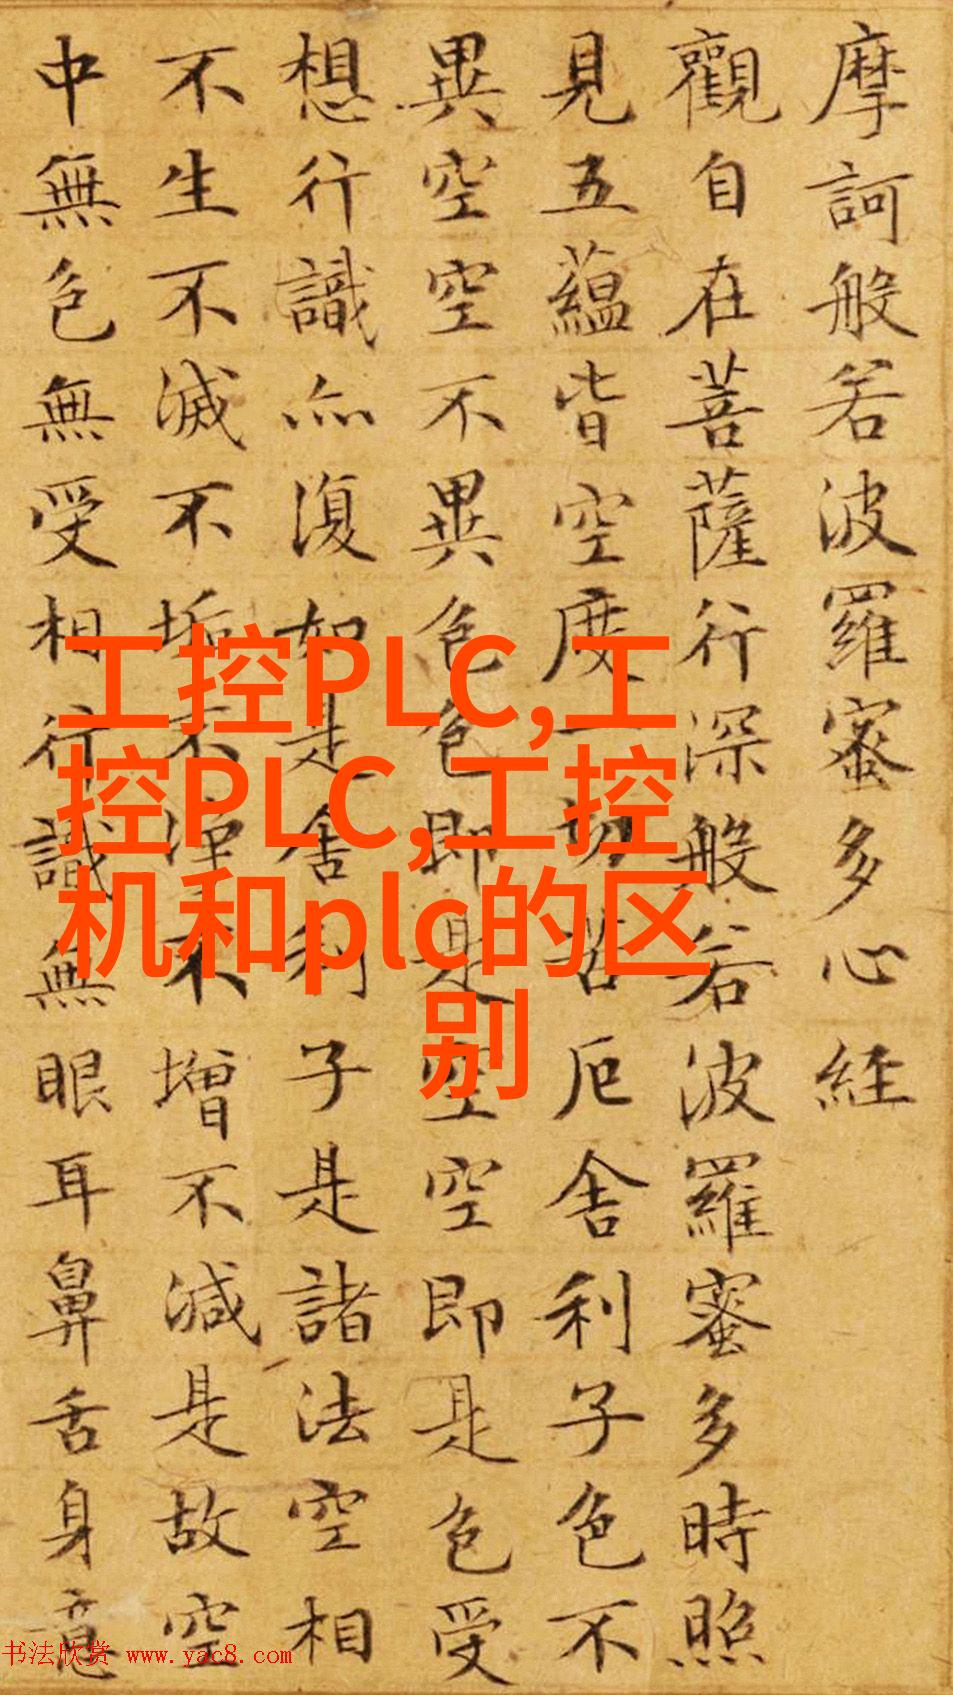 摩訶般若波羅蜜多心経
觀自在菩薩行深般若波羅蜜多時照
見五蘊皆空度一切苦厄舍利子色不
異空空不異色色即是空空即是色受
想行識亦復如是舍利子是諸法空相
不生不滅不垢不淨不增不減是故空
中無色無受相行識無眼耳鼻舌身意
工控PLC,工
控PLC,工控
机和plc的区
别
书法欣赏 www.yac8.com